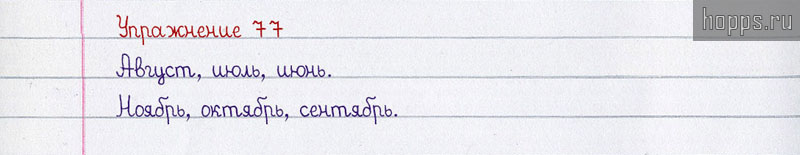 Упражнение 77
hopps.ru
Август, июль, июнь.
Ноябрь, октябрь, сентябрь.